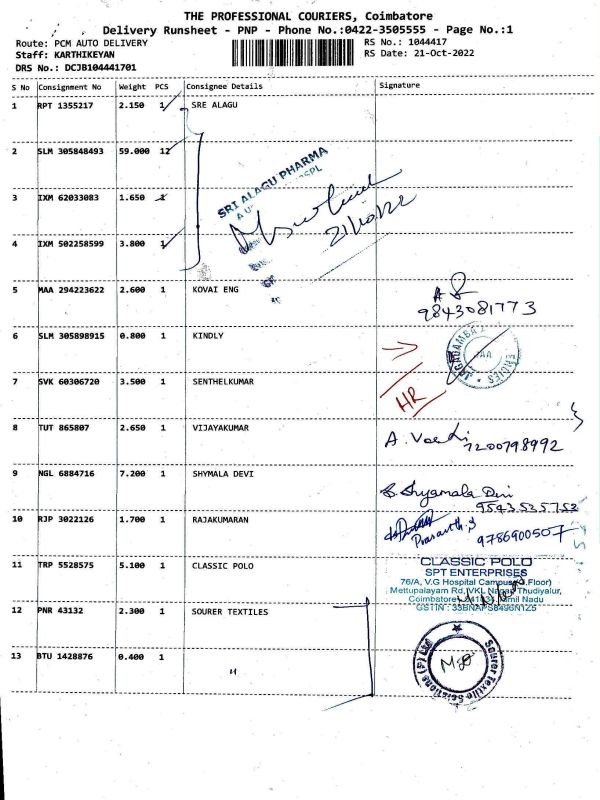 THE PROFESSIONAL COURIERS, Coimbatore
Delivery Runsheet - PNP - Phone No.:0422-3505555 - Page No.:1
Route: PCM AUTO DELIVERY RS No.: 1044417
Staff: KARTHIKEYAN RS Date: 21-Oct-2022
DRS No.: DCJB104441701
S No Consignment No Weight PCS Consignee Details Signature
1 RPT 1355217 2.150 1 SRE ALAGU
2 SLM 305848493 59.000 12
SRI ALAGU PHARMA
3 IXM 62033083 1.650 1
21/10/22
4 IXM 502258599 3.800 1
5 MAA 294223622 2.600 1 KOVAI ENG
9843081773
6 SLM 305898915 0.800 1 KINDLY
7 SVK 60306720 3.500 1 SENTHELKUMAR
HR
8 TUT 865807 2.650 1 VIJAYAKUMAR
7200798992
9 NGL 6884716 7.200 1 SHYMALA DEVI
S. Shyamala Devi
9543535752
10 RJP 3022126 1.700 1 RAJAKUMARAN
Prasanth.S 9786900507
11 TRP 5528575 5.100 1 CLASSIC POLO
CLASSIC POLO
SPT ENTERPRISES
76/A, V.G Hospital Campus Floor)
Mettupalayam Rd, VKL Nagar Thudiyalur,
Coimbatore Tamil Nadu
GSTIN : 33BNAPS8496N1Z5
12 PNR 43132 2.300 1 SOURER TEXTILES
13 BTU 1428876 0.400 1 "